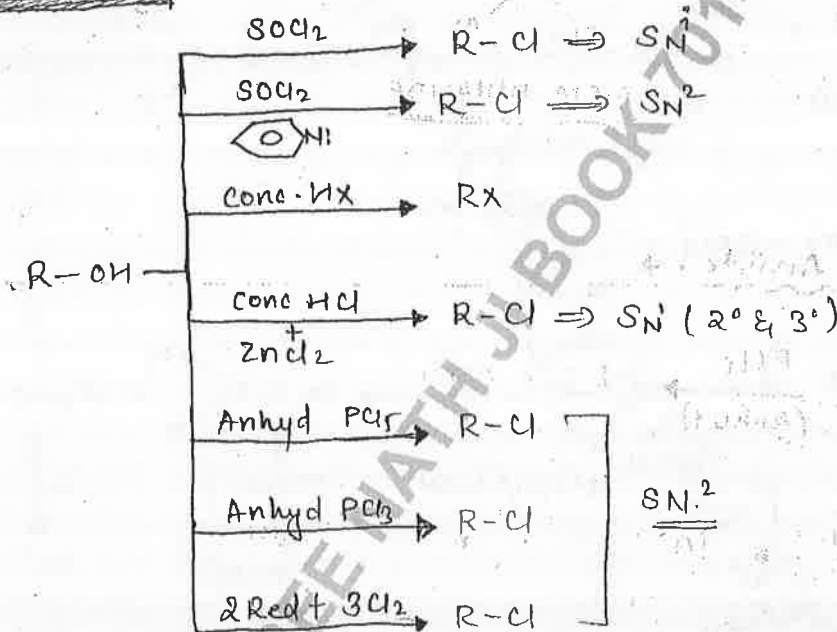 SOCl2
R-Cl ⇒ SNi
SOCl2
R-Cl ⟹ SN2
N:
conc. HX
RX
R-OH
conc HCl
+
ZnCl2
R-Cl ⇒ SN1 (2° & 3°)
Anhyd PCl5
R-Cl
Anhyd PCl3
R-Cl
SN.2
2Red + 3Cl2
R-Cl
EE NATH JI BOOK 701